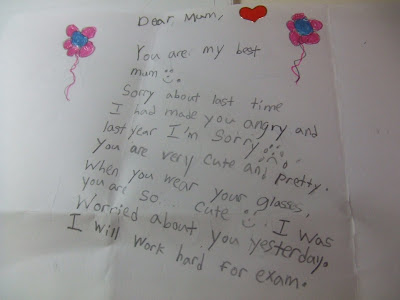 Dear, Mum,
You are my best
mum
Sorry about last time
I had made you angry and
last year I'm sorry
you are very cute and pretty.
When you wear your glasses,
you are so... cute I was
Worried about you yesterday.
I will work hard for exam.